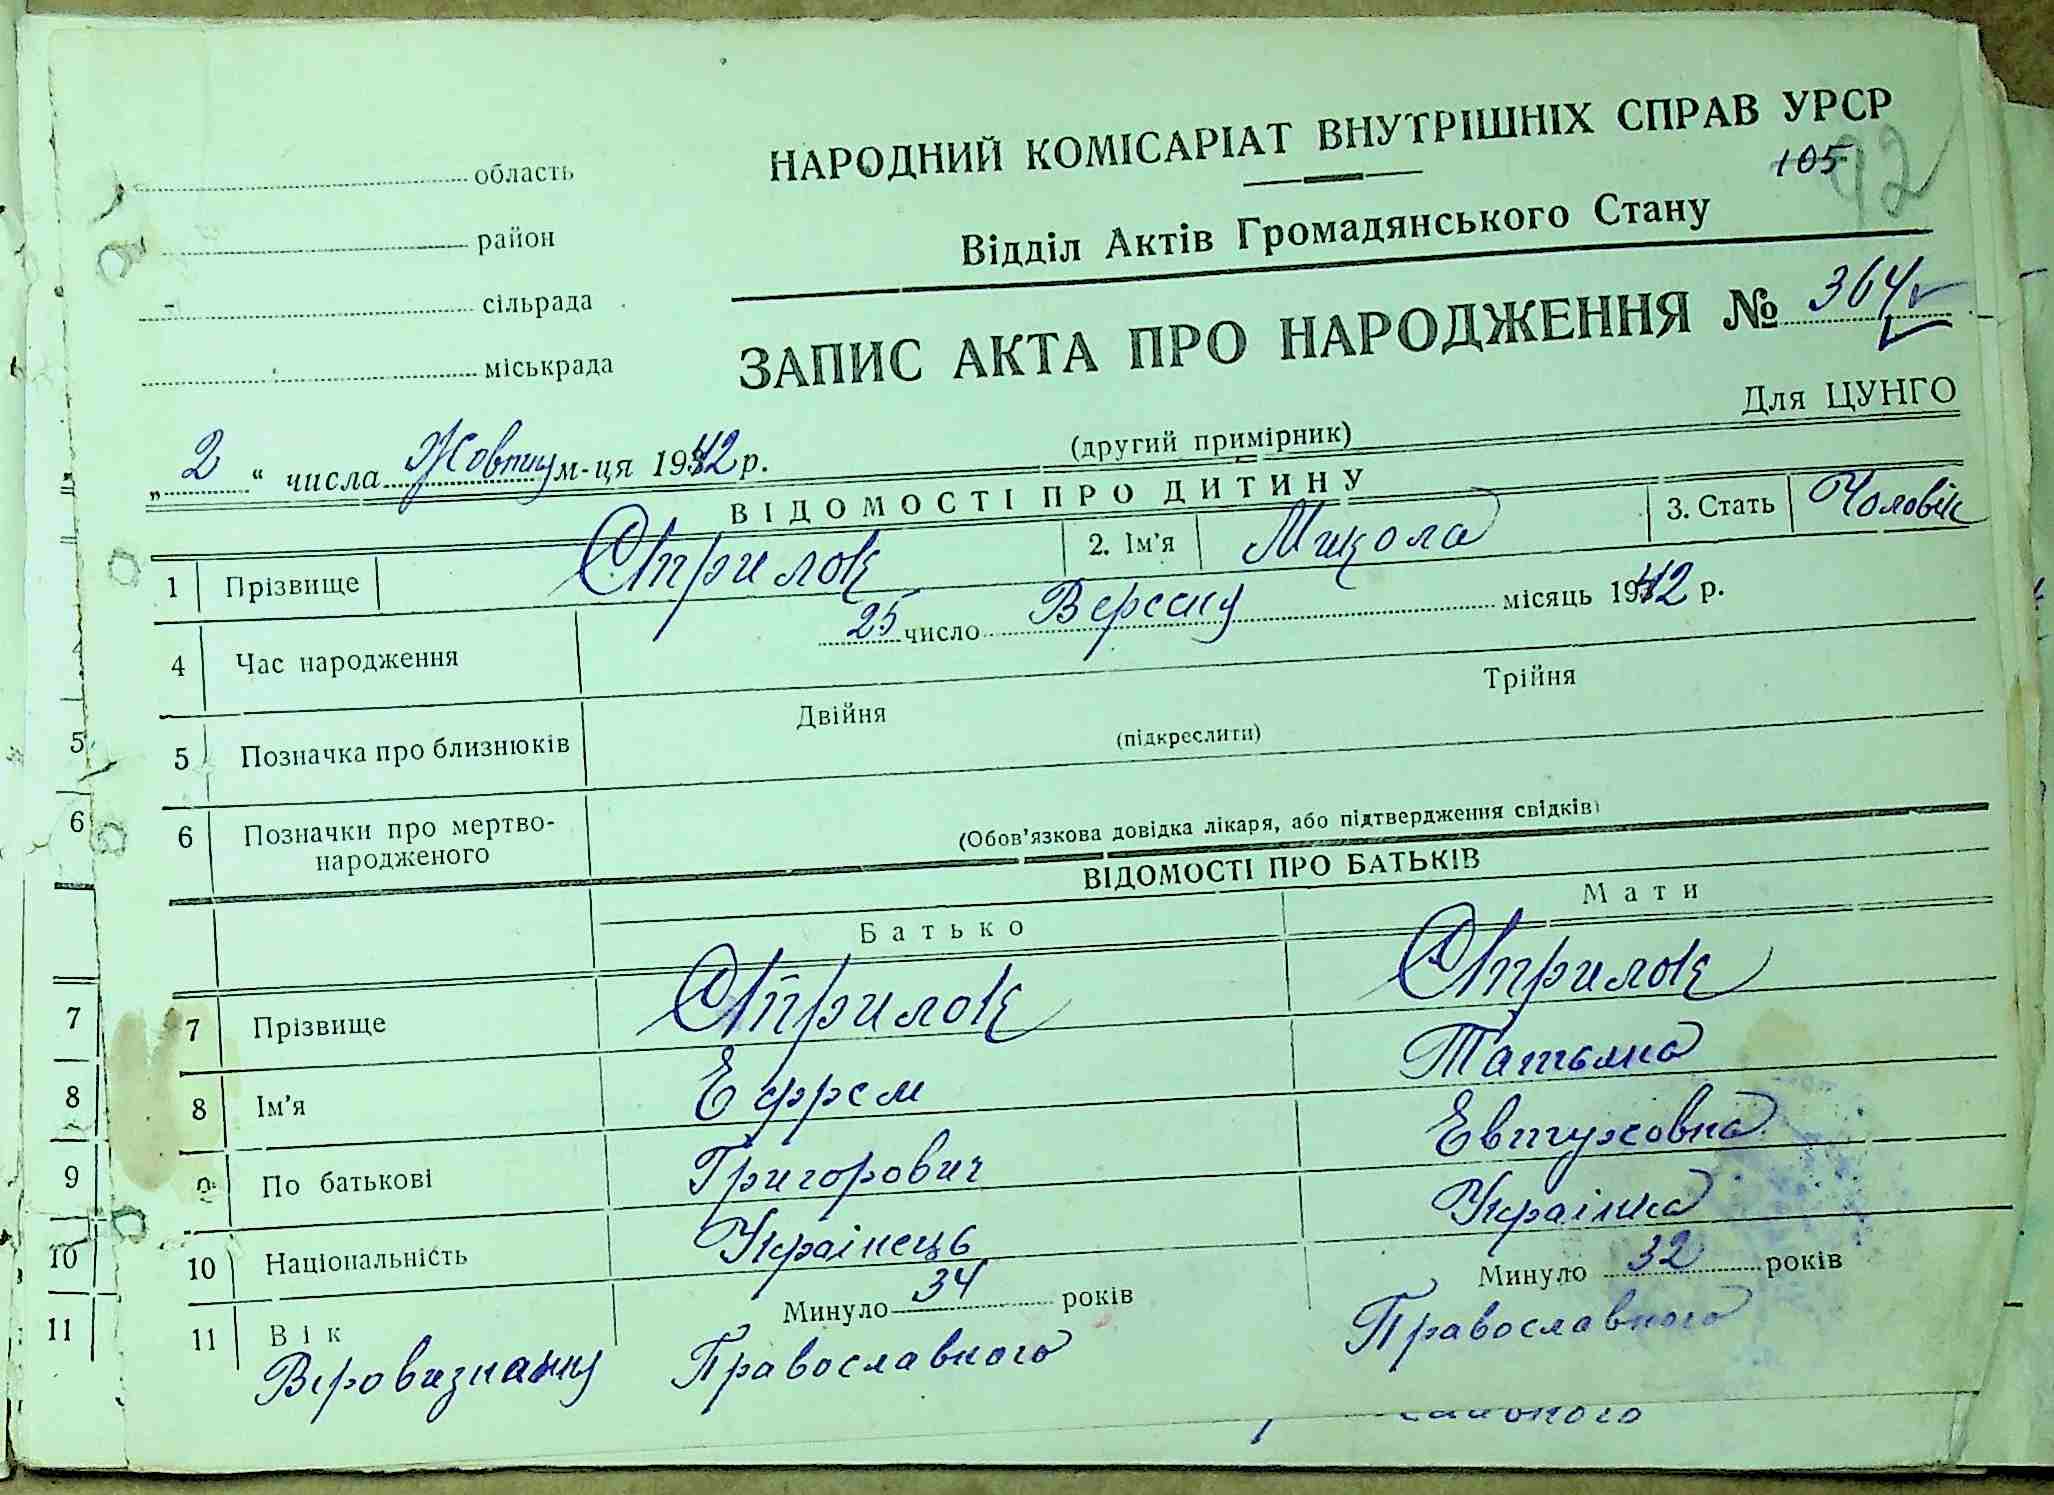 НАРОДНИЙ КОМІСАРІАТ ВНУТРІШНІХ СПРАВ УРСР
105 92
область
район
сільрада
міськрада
Відділ Актів Громадянського Стану
ЗАПИС АКТА ПРО НАРОДЖЕННЯ № 364
Для ЦУНГО
(другий примірник)
„ 2 “ числа Жовтня м-ця 1942 р.
ВІДОМОСТІ ПРО ДИТИНУ
1 Прізвище Стрилок 2. Ім'я Микола 3. Стать Чоловік
4 Час народження 25 число Вересня місяць 1942 р.
5 Позначка про близнюків Двійня Трійня
(підкреслити)
6 Позначки про мертво-
народженого
(Обов'язкова довідка лікаря, або підтвердження свідків)
ВІДОМОСТІ ПРО БАТЬКІВ
Батько Мати
7 Прізвище Стрилок Стрилок
8 Ім'я Ефрем Татьяна
9 По батькові Григорович Евтуховна
10 Національність Українець Українка
11 Вік Минуло 34 років Минуло 32 років
Вєровизнання Православного Православного
5
6
7
8
9
10
11